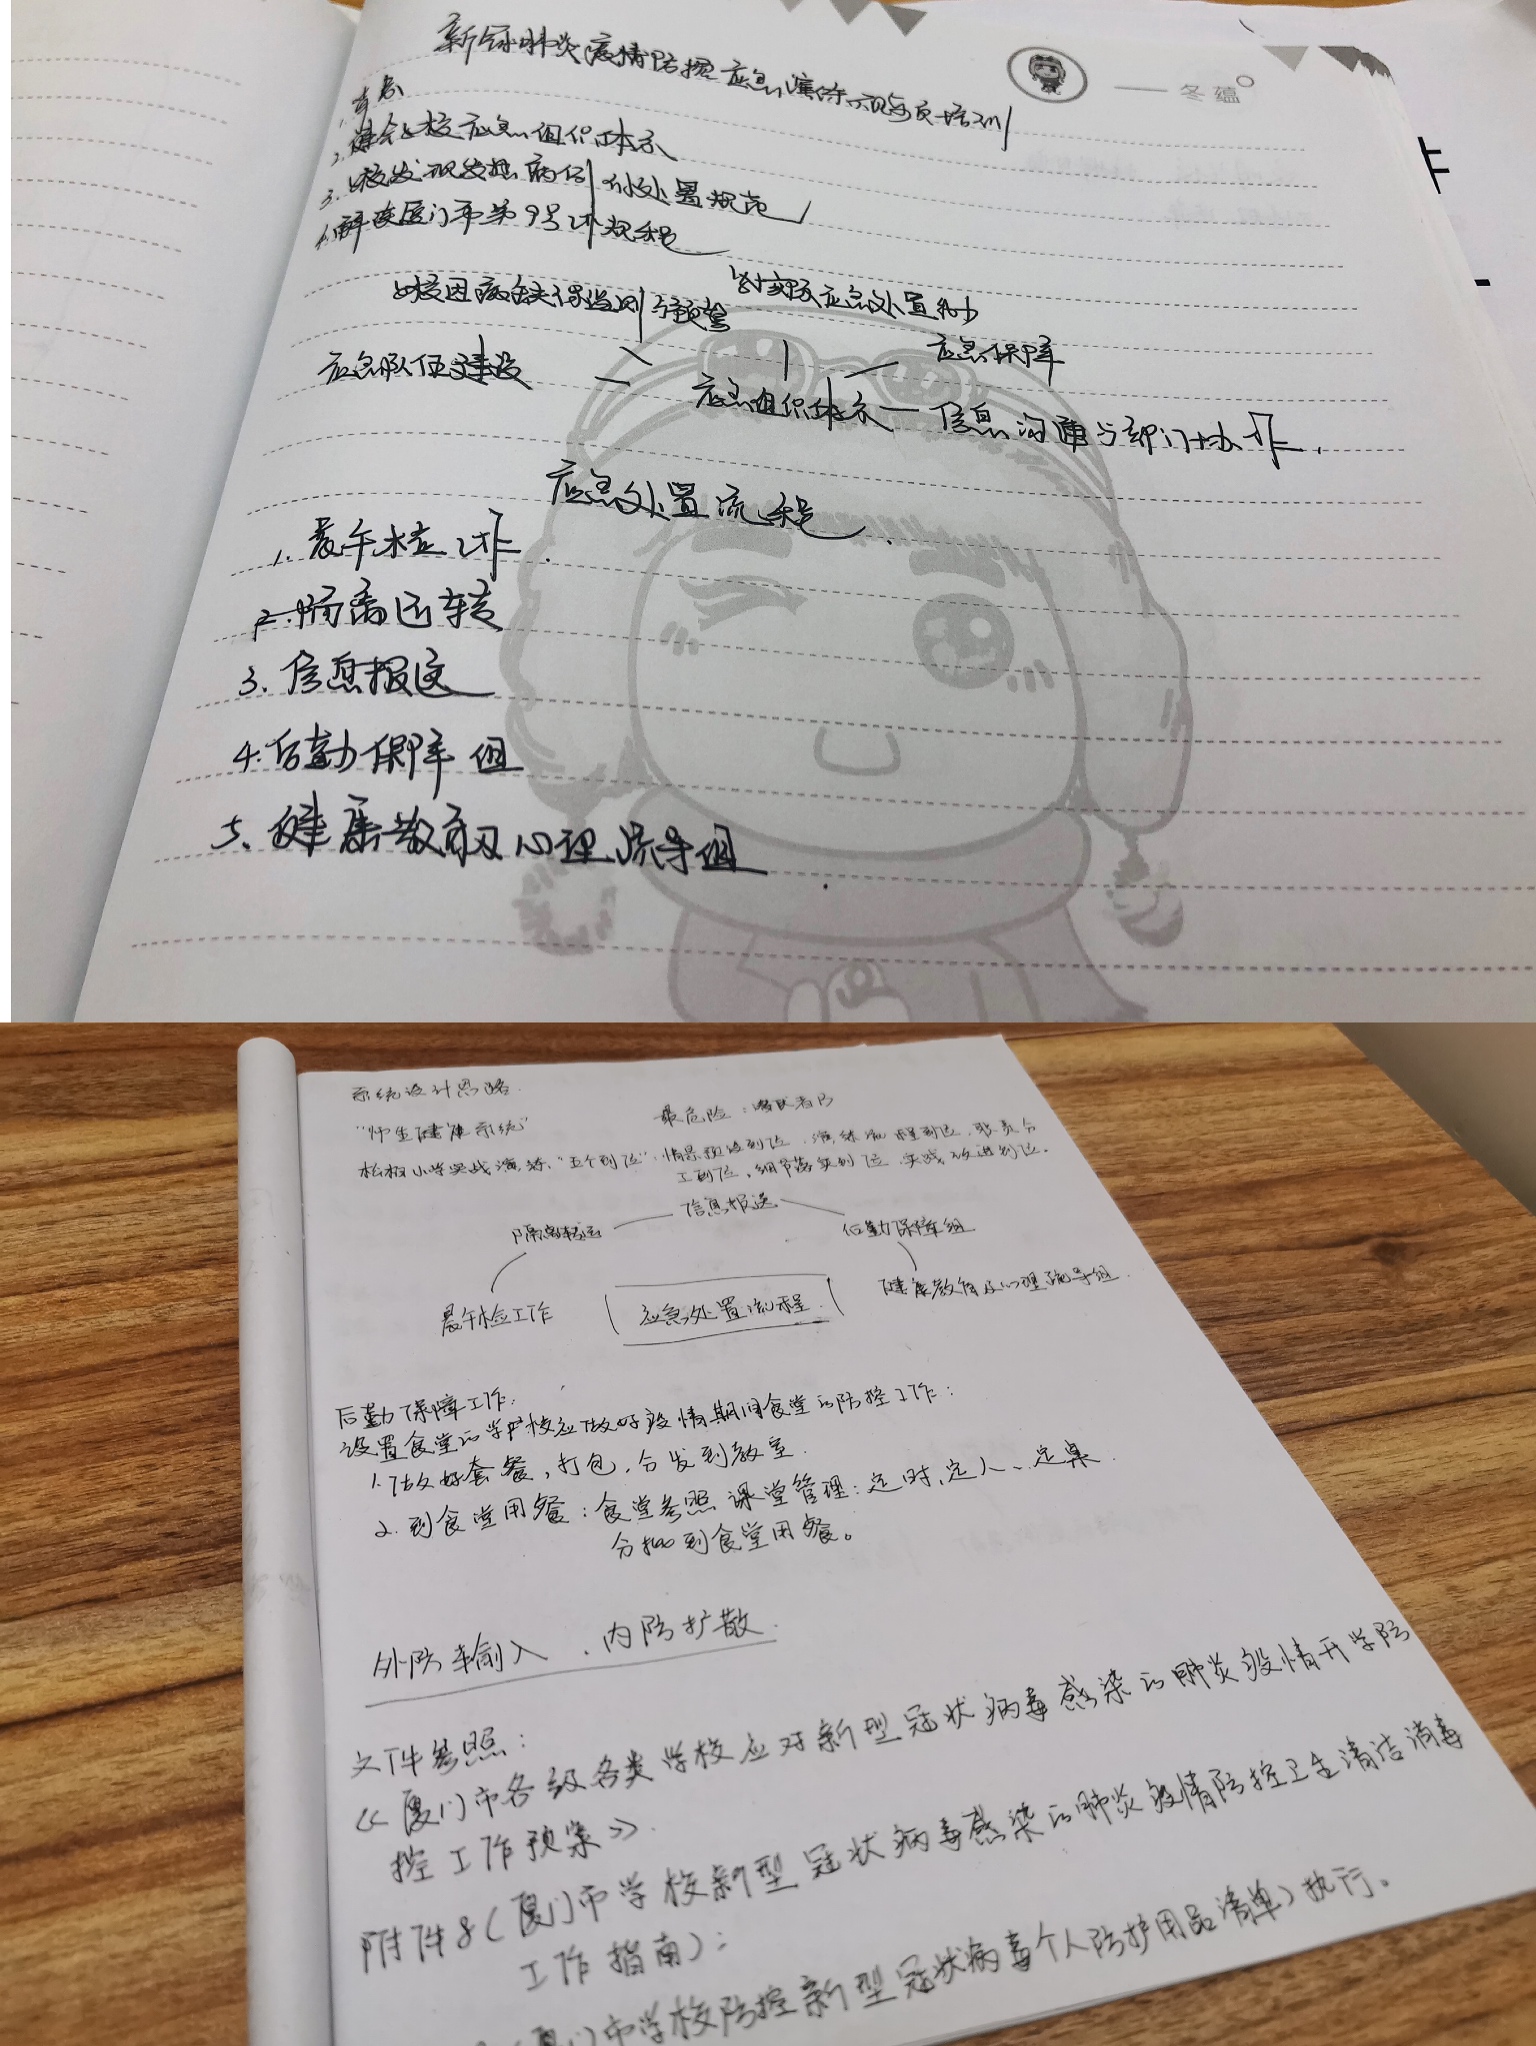 新冠肺炎疫情防控应急演练观
培训
冬蕴
1.背景
2.健全校应急组织体系
3.校发现发热病例 处置规范
4.解读厦门市第9号 规程
校因病缺课监测与预警
应急处置
应急队伍建设
应急保障
应急组织体系
信息沟通与部门协作.
应急处置流程.
1.晨午检工作.
2.隔离运转
3.信息报送
4.后勤保障组
5.健康教育及心理疏导组
系统设计思路.
"师生健康系统"
最危险:
小学实战演练,"五个到位":情景预设到位,演练流程到位,职责分
工到位,细节落实到位,实战改进到位.
信息报送
隔离转运
后勤保障组
健康教育及心理疏导组.
晨午检工作
应急处置流程.
后勤保障工作:
设置食堂的学校应做好疫情期间食堂的防控工作:
1.做好套餐,打包,分发到教室.
2.到食堂用餐:食堂参照课堂管理:定时、定人、定桌.
分批到食堂用餐。
外防输入、内防扩散.
文件参照:
《厦门市各级各类学校应对新型冠状病毒感染的肺炎疫情开学防
控工作预案》.
附件8(厦门市学校新型冠状病毒感染的肺炎疫情防控卫生清洁消毒
工作指南);
(厦门市学校防控新型冠状病毒个人防护用品清单)执行。